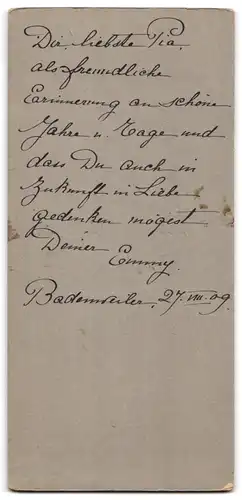 Dir, liebste Pia,
als freundliche
Erinnerung an schöne
Jahre u. Tage und
dass Du auch in
Zukunft in Liebe
gedenken mögest
Deiner
Emmy.
Badenweiler, 27. VIII. 09.